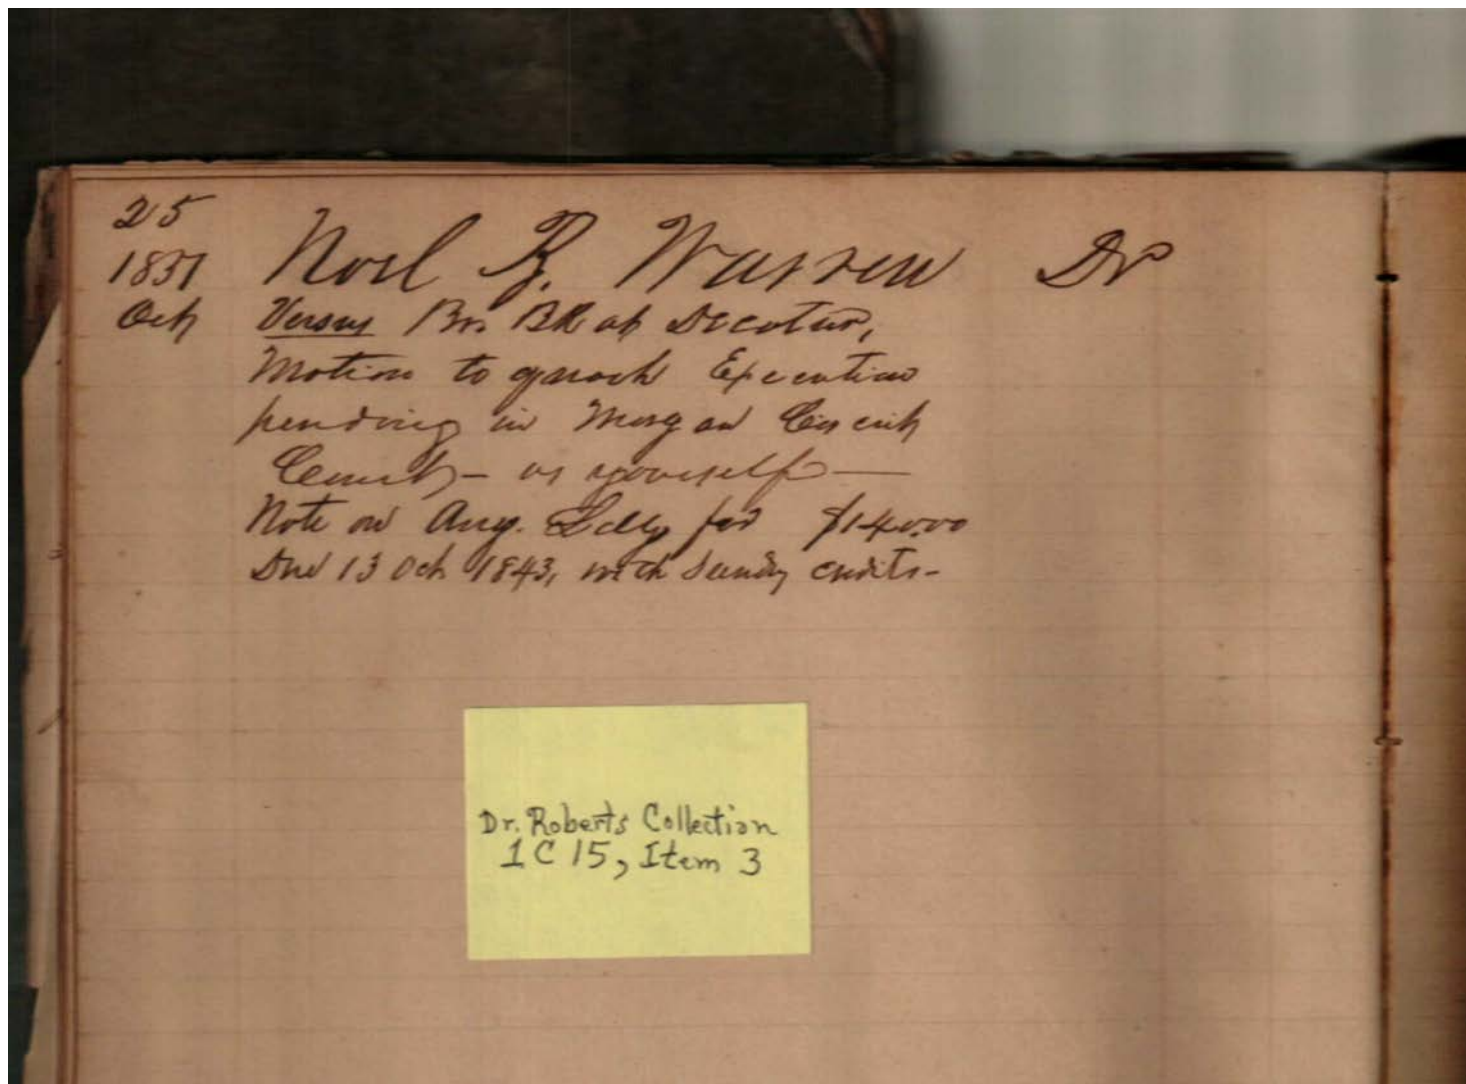 25
1857 Noel B. Warren Dr
Oct Versus Br. BK at Decatur,
Motion to quash Execution
pending in Morgan Circuit
Court – vs yourself –
Note on Aug. for $140.00
Due 13 Oct 1843, with Sundry credits –
Dr. Roberts Collection
1C15, Item 3